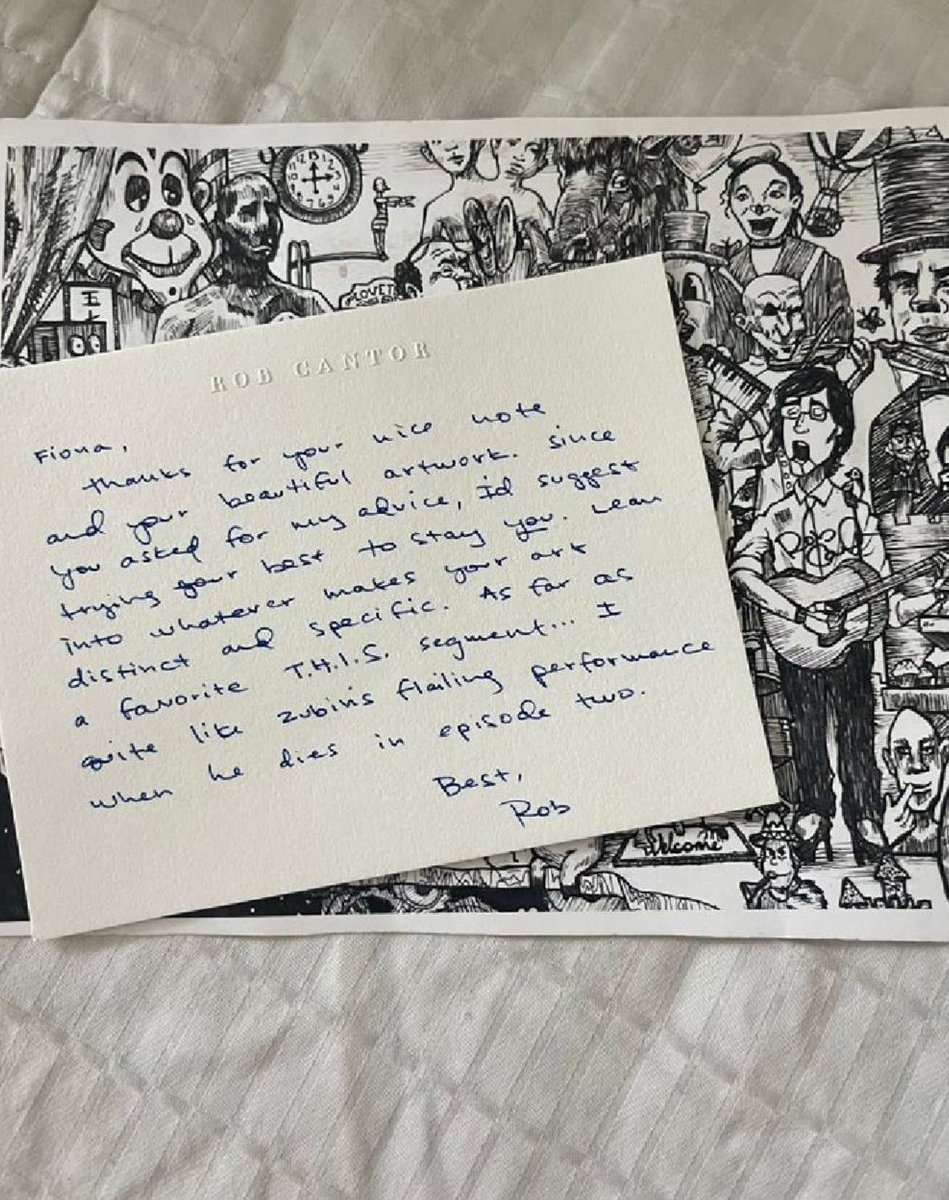 ROB CANTOR
Fiona,
thanks for your nice note
and your beautiful artwork. since
you asked for my advice, I'd suggest
trying your best to stay you. Lean
into whatever makes your art
distinct and specific. As far as
a favorite T.H.I.S. segment... I
quite like zubin's flailing performance
when he dies in episode two.
Best,
Rob
Welcome